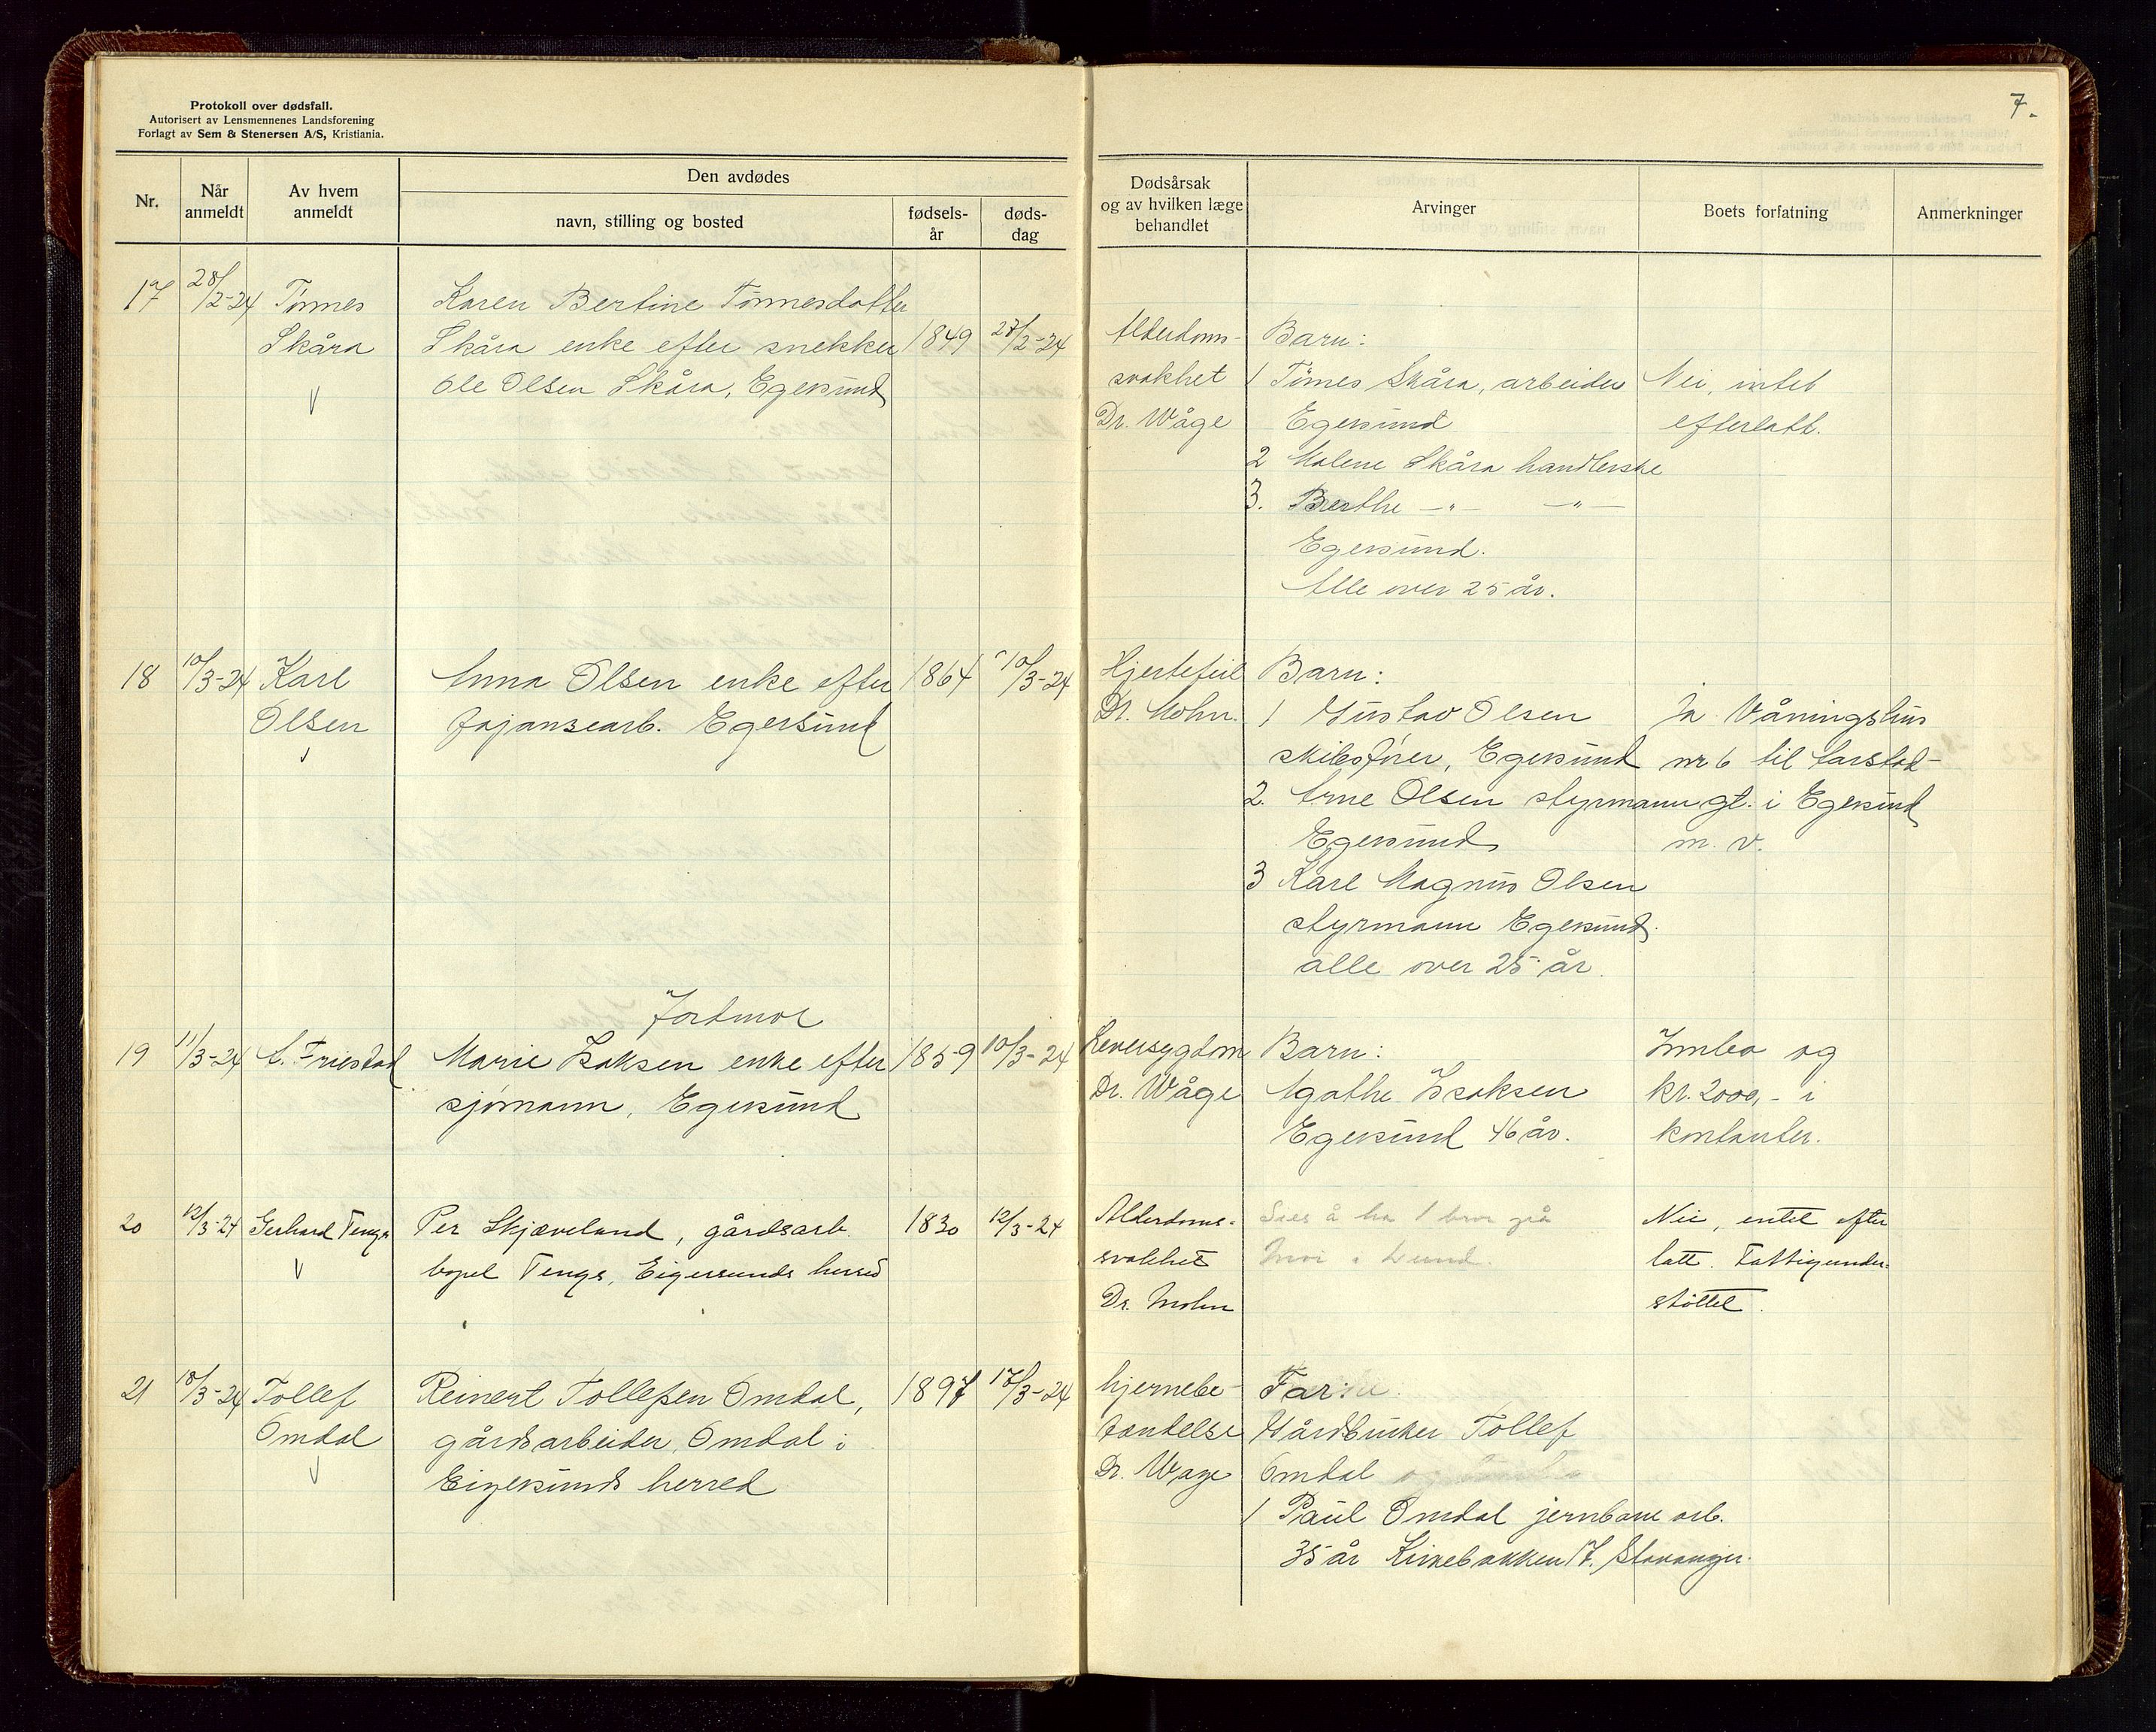 Protokoll over dødsfall.
Autorisert av Lensmennenes Landsforening
Forlagt av Sem & Stenersen A/S, Kristiania.
7.
Nr.
Når anmeldt
Av hvem anmeldt
Den avdødes
navn, stilling og bosted
fødsels-år
døds-dag
Dødsårsak
og av hvilken læge
behandlet
Arvinger
Boets forfatning
Anmerkninger
17 28/2-24 Tönnes Karen Bertine Tönnesdatter
Skåra Skåra enke efter snekker 1849 27/2-24
Ole Olsen Skåra, Egersund
Alderdoms- Barn:
svakhet 1 Tönnes Skåra, arbeider Nei, intet
Dr. Wåge Egersund efterlatt.
2 Malene Skåra handlerske
3. Berthe —"— —"—
Egersund.
Alle over 25 år.
18 10/3-24 Karl Anna Olsen enke efter 1864 10/3-24
Olsen fajansearb. Egersund
Hjertefeil Barn:
Dr. Mohn. 1 Gustav Olsen Ja Våningshus
skibsfører, Egersund nr 6 til Aarstad-
2. Arne Olsen styrmann gt. i Egersund
Egersund m. v.
3 Karl Magnus Olsen
styrmann Egersund.
alle over 25 år.
Jordmor
19 11/3-24 A. Friestad Marie Isaksen enke efter 1859 10/3-24
sjømann, Egersund
Leversygdom Barn: Innbo og
Dr. Wåge Agathe Isaksen kr. 2000,- i
Egersund 46 år. kontanter.
20 12/3-24 Gerhard Tengs Per Skjæveland, gårdsarb. 1830 12/3-24
bopel Tengs, Eigersunds herred
Alderdoms- Sies å ha 1 bror på Nei, intet efter
svakhet Moi i Lund. latt. Fattigunder-
Dr. Mohn støttet.
21 18/3-24 Tollef Reinert Tollefsen Omdal, 1897 17/3-24
Omdal gårdsarbeider, Omdal i
Eigersunds herred
hjernebe- Far:
tændelse Gårdbruker Tollef
Dr. Wage Omdal
1 Paul Omdal jernbane arb.
35 år Kirkebakken 17. Stavanger.